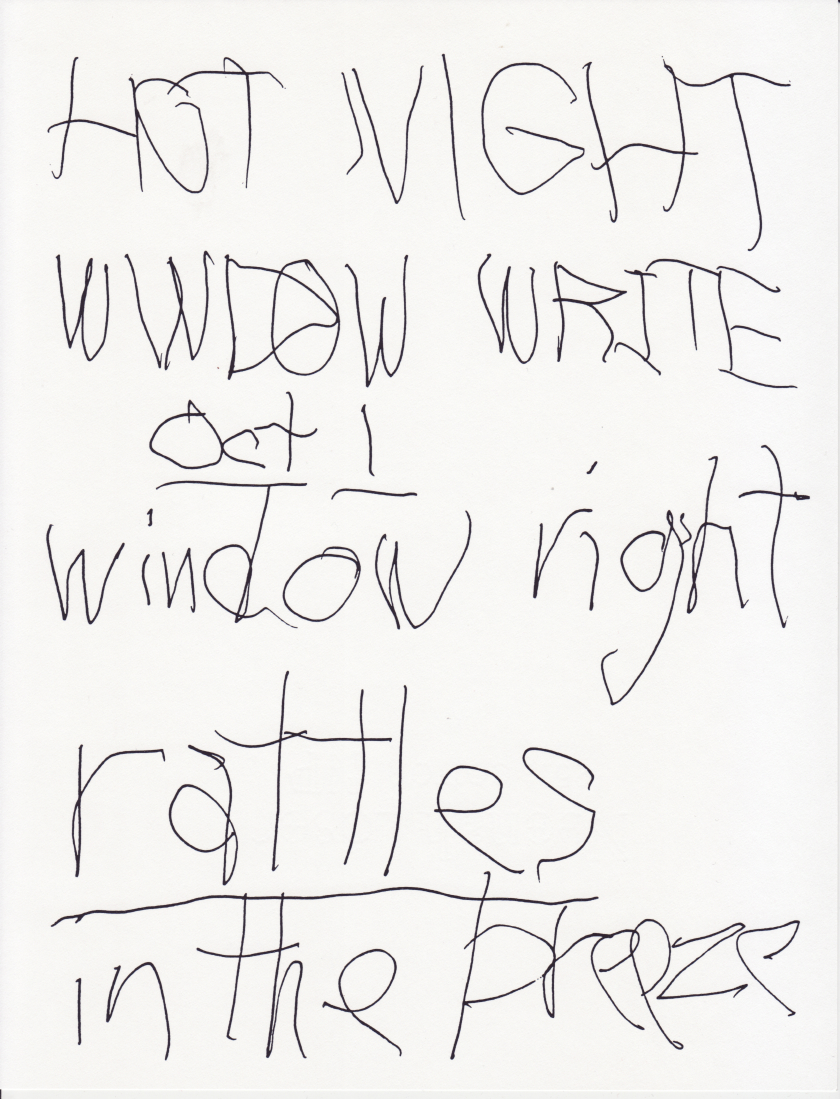 HOT NIGHT
WINDOW WRITE
Oct 1
window right
rattles
in the breeze